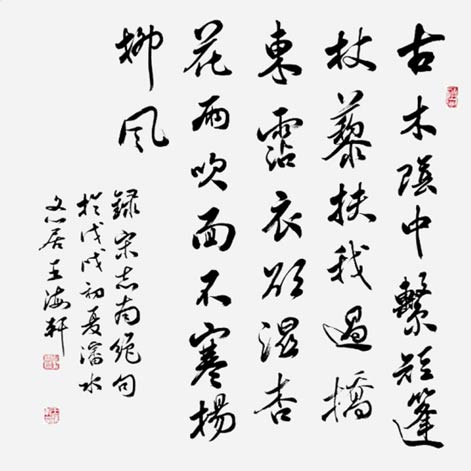 古木陰中繫短篷
杖藜扶我過橋
東霑衣欲濕杏
花雨吹面不寒楊
柳風
錄宋志南絕句
於戊戌初夏瀋水
文心居王海軒